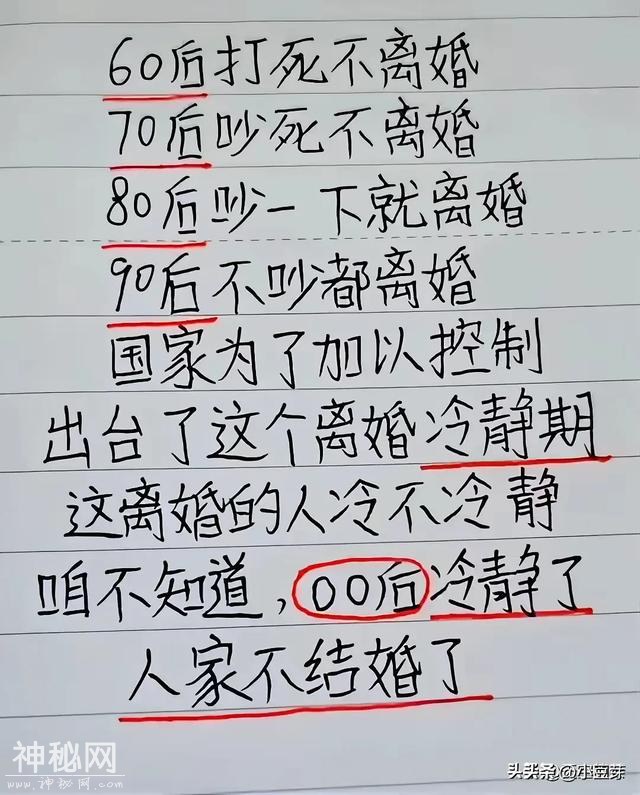 60后打死不离婚
70后吵死不离婚
80后吵一下就离婚
90后不吵都离婚
国家为了加以控制
出台了这个离婚冷静期
这离婚的人冷不冷静
咱不知道,00后冷静了
人家不结婚了
神秘网
www.神秘网.com
头条@小豆芽